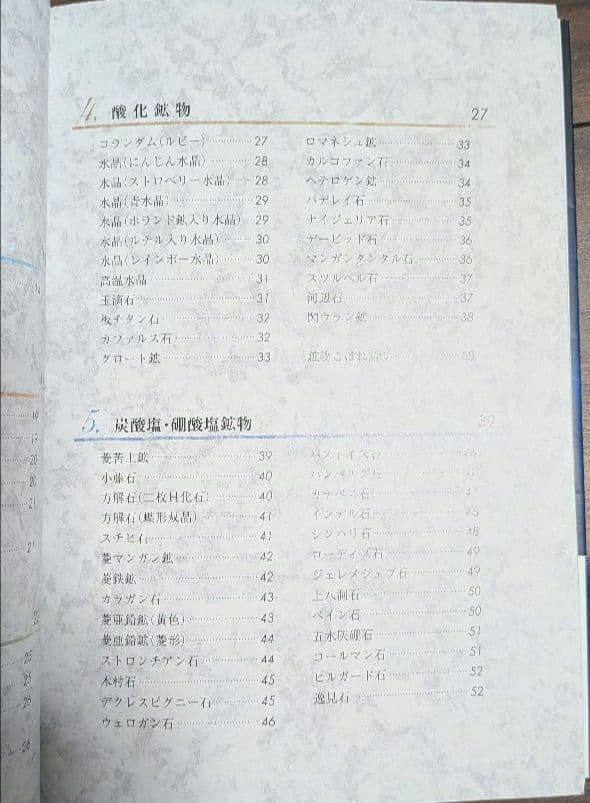 4. 酸化鉱物 27
コランダム(ルビー) 27
水晶(にんじん水晶) 28
水晶(ストロベリー水晶) 28
水晶(青水晶) 29
水晶(ホランド鉱入り水晶) 29
水晶(ルチル入り水晶) 30
水晶(レインボー水晶) 30
高温水晶 31
玉滴石 31
板チタン石 32
カファルス石 32
グロート鉱 33
ロマネシュ鉱 33
カルコファン石 34
ヘテロゲン鉱 34
バデレイ石 35
ナイジェリア石 35
デービッド石 36
マンガンタンタル石 36
スツルベル石 37
河辺石 37
閃ウラン鉱 38
鉱物こぼれ話 38
5. 炭酸塩・硼酸塩鉱物 39
菱苦土鉱 39
小藤石 40
方解石(二枚貝化石) 40
方解石(蝶形双晶) 41
スチヒ石 41
菱マンガン鉱 42
菱鉄鉱 42
カラガン石 43
菱亜鉛鉱(黄色) 43
菱亜鉛鉱(菱形) 44
ストロンチアン石 44
木村石 45
デクレスピグニー石 45
ウェロガン石 46
バストネス石 46
ハンベルグ石
カナベス石 47
インデル石 48
シンハリ石 48
ローディズ石 49
ジェレメジェフ石 49
上八洞石 50
ペイン石 50
五水灰硼石 51
コールマン石 51
ビルガード石 52
逸見石 52
14
19
19
20
20
21
21
22
25
25
26
26